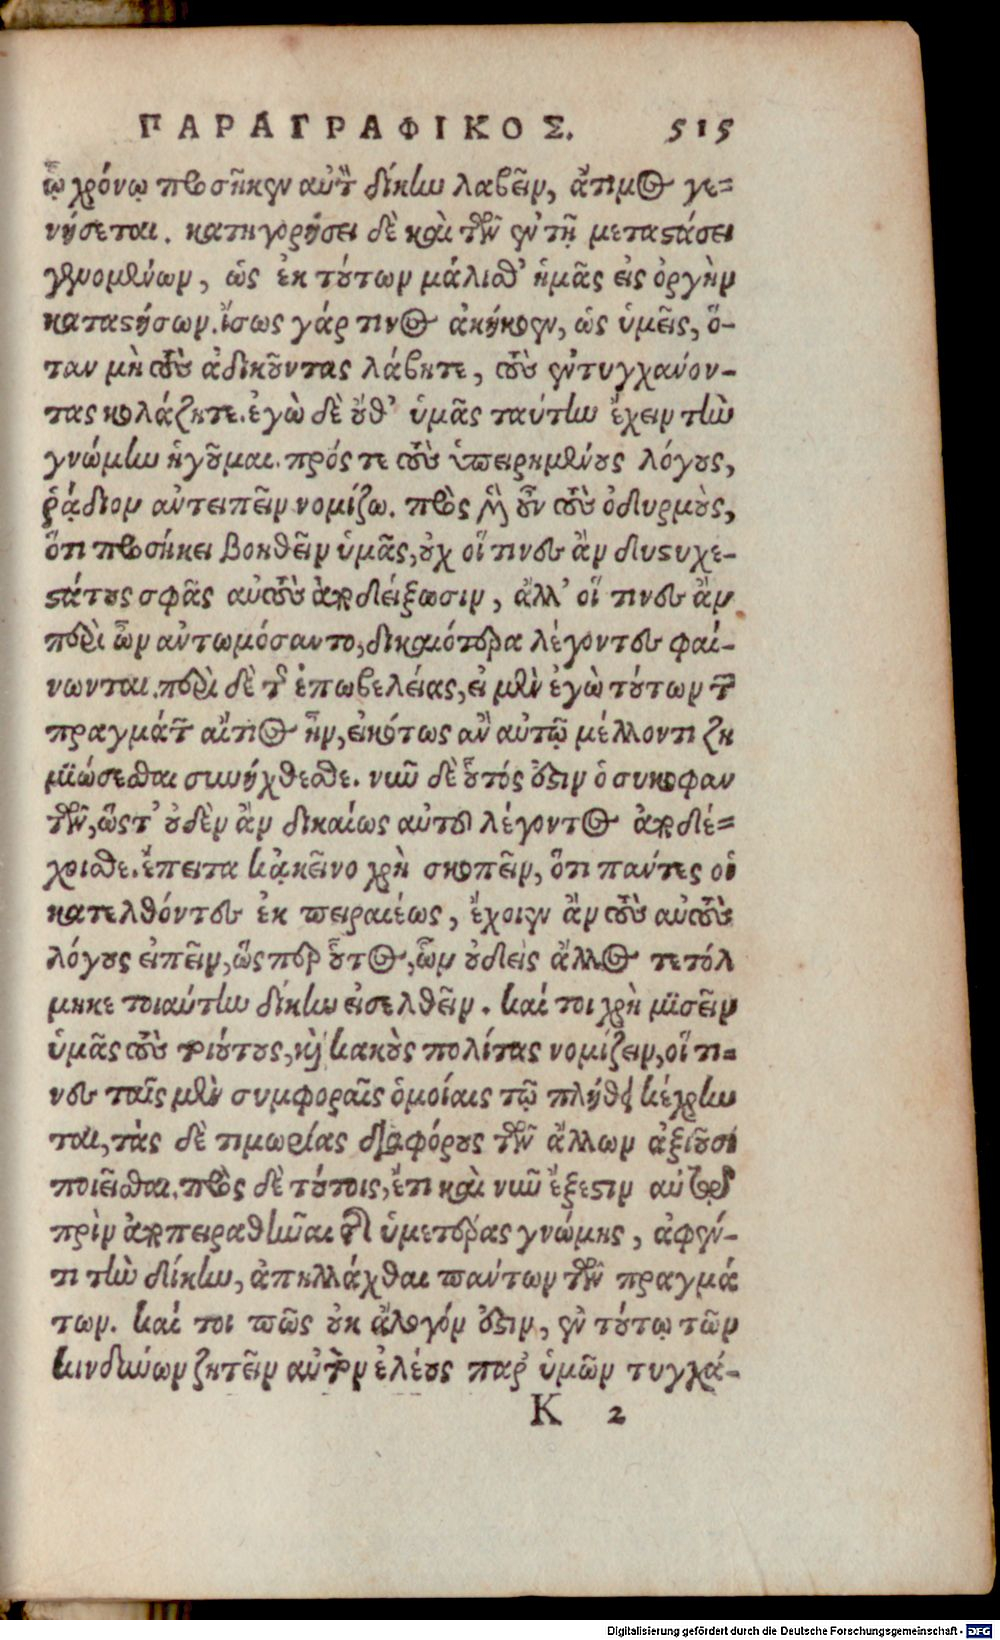 ΠΑΡΑΓΡΑΦΙΚΟΣ. 515
ᾧ χρόνῳ προσῆκεν αὐτὸν δίκην λαβεῖν, ἄτιμος γε=
νήσεται. κατηγορήσει δὲ καὶ τῶν ἐν τῇ μεταστάσει
γενομένων, ὡς ἐκ τούτων μάλισθ' ἡμᾶς εἰς ὀργὴν
καταστήσων. ἴσως γάρ τινος ἀκήκοεν, ὡς ὑμεῖς, ὅ-
ταν μὴ τοὺς ἀδικοῦντας λάβητε, τοὺς ἐντυγχάνον-
τας κολάζητε. ἐγὼ δὲ οὔθ' ὑμᾶς ταύτην ἔχειν τὴν
γνώμην ἡγοῦμαι. πρός τε τοὺς ὑπειρημένους λόγους,
ῥᾴδιον ἀντειπεῖν νομίζω. πρὸς μὲν οὖν τοὺς ὀδυρμοὺς,
ὅτι προσήκει βοηθεῖν ὑμᾶς, οὐχ οἵ τινες ἂν δυστυχε-
στάτους σφᾶς αὐτοὺς ἀποδείξωσιν, ἀλλ' οἵ τινες ἂν
περὶ ὧν ἀντωμόσαντο, δικαιότερα λέγοντες φαί-
νωνται. περὶ δὲ τῆς ἐπωβελείας, εἰ μὲν ἐγὼ τούτων τῶν
πραγμάτων αἴτιος ἦν, εἰκότως ἂν αὐτῷ μέλλοντι ζη
μιώσεσθαι συνήχθεσθε. νῦν δὲ οὗτός ἐστιν ὁ συκοφαν
τῶν, ὥστ' οὐδὲν ἂν δικαίως αὐτοῦ λέγοντος ἀποδέ=
χοισθε. ἔπειτα κἀκεῖνο χρὴ σκοπεῖν, ὅτι πάντες οἱ
κατελθόντες ἐκ πειραιέως, ἔχοιεν ἂν τοὺς αὐτοὺς
λόγους εἰπεῖν, ὥσπερ οὗτος, ὧν οὐδεὶς ἄλλος τετόλ
μηκε τοιαύτην δίκην εἰσελθεῖν. καί τοι χρὴ μισεῖν
ὑμᾶς τοὺς τοιούτους, καὶ κακοὺς πολίτας νομίζειν, οἵ τι=
νες ταῖς μὲν συμφοραῖς ὁμοίαις τῷ πλήθει κέχρην
ται, τὰς δὲ τιμωρίας διαφόρους τῶν ἄλλων ἀξιοῦσι
ποιεῖσθαι. πρὸς δὲ τούτοις, ἔτι καὶ νῦν ἔξεστιν αὐτῷ
πρὶν ἀποπειραθῆναι τῆς ὑμετέρας γνώμης, ἀφέν-
τι τὴν δίκην, ἀπηλλάχθαι πάντων τῶν πραγμά
των. καί τοι πῶς οὐκ ἄλογόν ἐστιν, ἐν τούτῳ τῶν
κινδύνων ζητεῖν αὐτὸν ἐλέους παρ' ὑμῶν τυγχά-
K 2
Digitalisierung gefördert durch die Deutsche Forschungsgemeinschaft - DFG